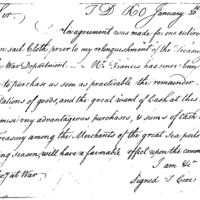 Sir, T D, R O January 30th
An agreement was made for one entire
on sail Cloth prior to my relinquishment of the Treasury
the War Department. Mr. Francis has since been
to purchase as soon as practicable the remainder
lations of goods, and the great want of Cash at this
make very advantageous purchases, & sums of cash
Treasury among the Merchants of the great Sea ports
ing season, will have a favorable effect upon the comm
I am &c
Secy at War Signed T. Coxe